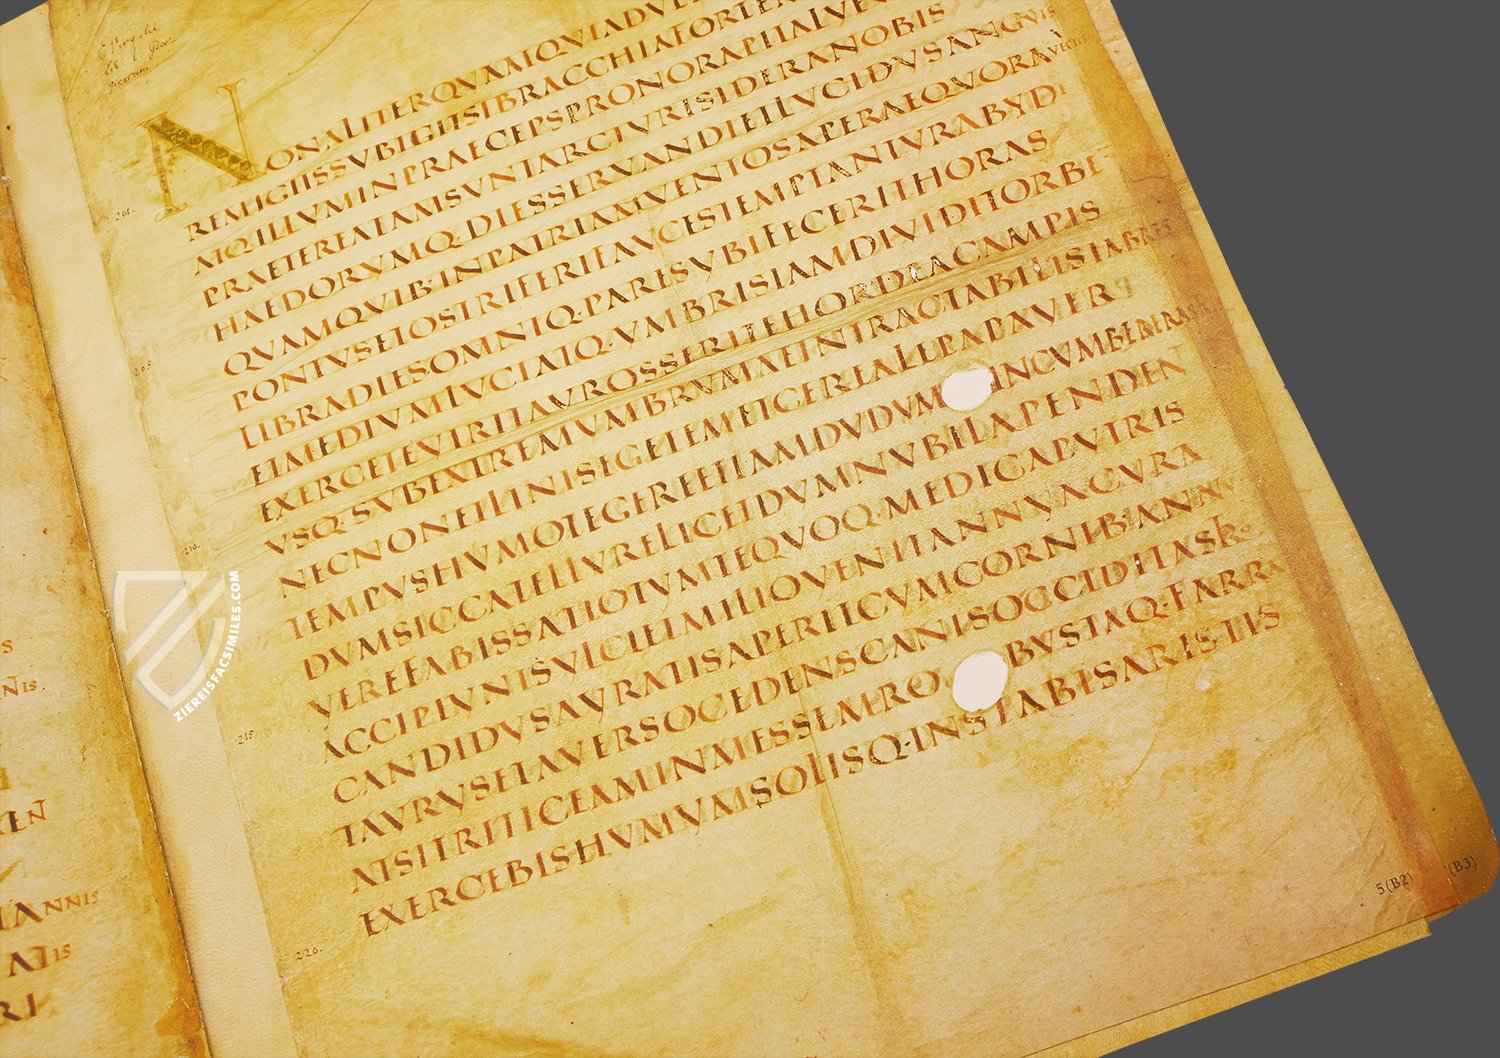 E Virgilii
lib. 1. Geor
gicorum
NONALITERQVAMQVIADVE
REMIGIISSVBIGITSIBRACCHIAFORTER
ATQ·ILLVMINPRAECEPSPRONORAPITALVE
PRAETEREATAMSVNTARCTVRISIDERANOBIS
HAEDORVMQ·DIESSERVANDIETLVCIDVSANGVIS
QVAMQVIB·INPATRIAMVENTOSAPERAEQVORAVECTIS
PONTVSETOSTRIFERIFAVCESTEMPTANTVRABYDI
LIBRADIESOMNIQ·PARESVBIFECERITHORAS
ETMEDIVMLVCIATQ·VMBRISIAMDIVIDITORBE
EXERCETEVIRITAVROSSERITEHORDEACAMPIS
VSQ·SVBEXTREMVMBRVMAEINTRACTABILISIMBRES
NECNONETLINISEGETEMETCEREALEPAPAVER
TEMPVSHVMOTEGEREETIAMDVDVM INCVMBERERASTRIS
DVMSICCATELLVRELICETDVMNVBILAPENDEN
VEREFABISSATIOTVMTEQVOQ·MEDICAPVTRIS
ACCIPIVNTSVLCIETMILIOVENITANNVACVRA
CANDIDVSAVRATISAPERITCVMCORNIB·ANNV
TAVRVSETAVERSOCEDENSCANISOCCIDITASR
ATSITRITICEAMINMESSEMRO BVSTAQ·FARRA
EXERCEBISHVMVMSOLISQ·INSTABISARISTIS
201.
205.
210.
215.
220.
5(B2)
(B3)
S
NIS.
EN
ANNIS
ATIS
RI
ZIEREISFACSIMILES.COM